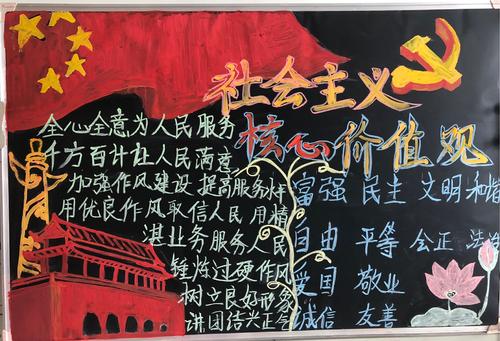 社会主义
核心价值观
全心全意为人民服务
千方百计让人民满意
加强作风建设 提高服务水平
用优良作风取信人民 用精
湛业务服务人民
锤炼过硬作风
树立良好形象
讲团结兴正
富强 民主 文明 和谐
自由 平等 会正 法治
爱国 敬业
诚信 友善